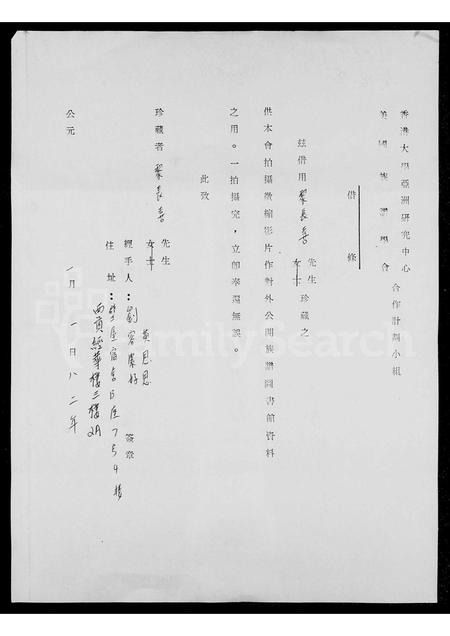 香港大學亞洲研究中心
美國族譜學會
合作計劃小組
借條
茲借用黎長喜
先生
女士
珍藏之
供本會拍攝微縮影片作對外公開族譜圖書館資料
之用。一拍攝完,立即奉還無誤。
此致
珍藏者 黎長喜
先生
女士
經手人:劉容慶好 黃見恩 簽發
住址:學屋宿舍B座754號
西貢經華樓三樓2A
公元 一月一日八二年
FamilySearch